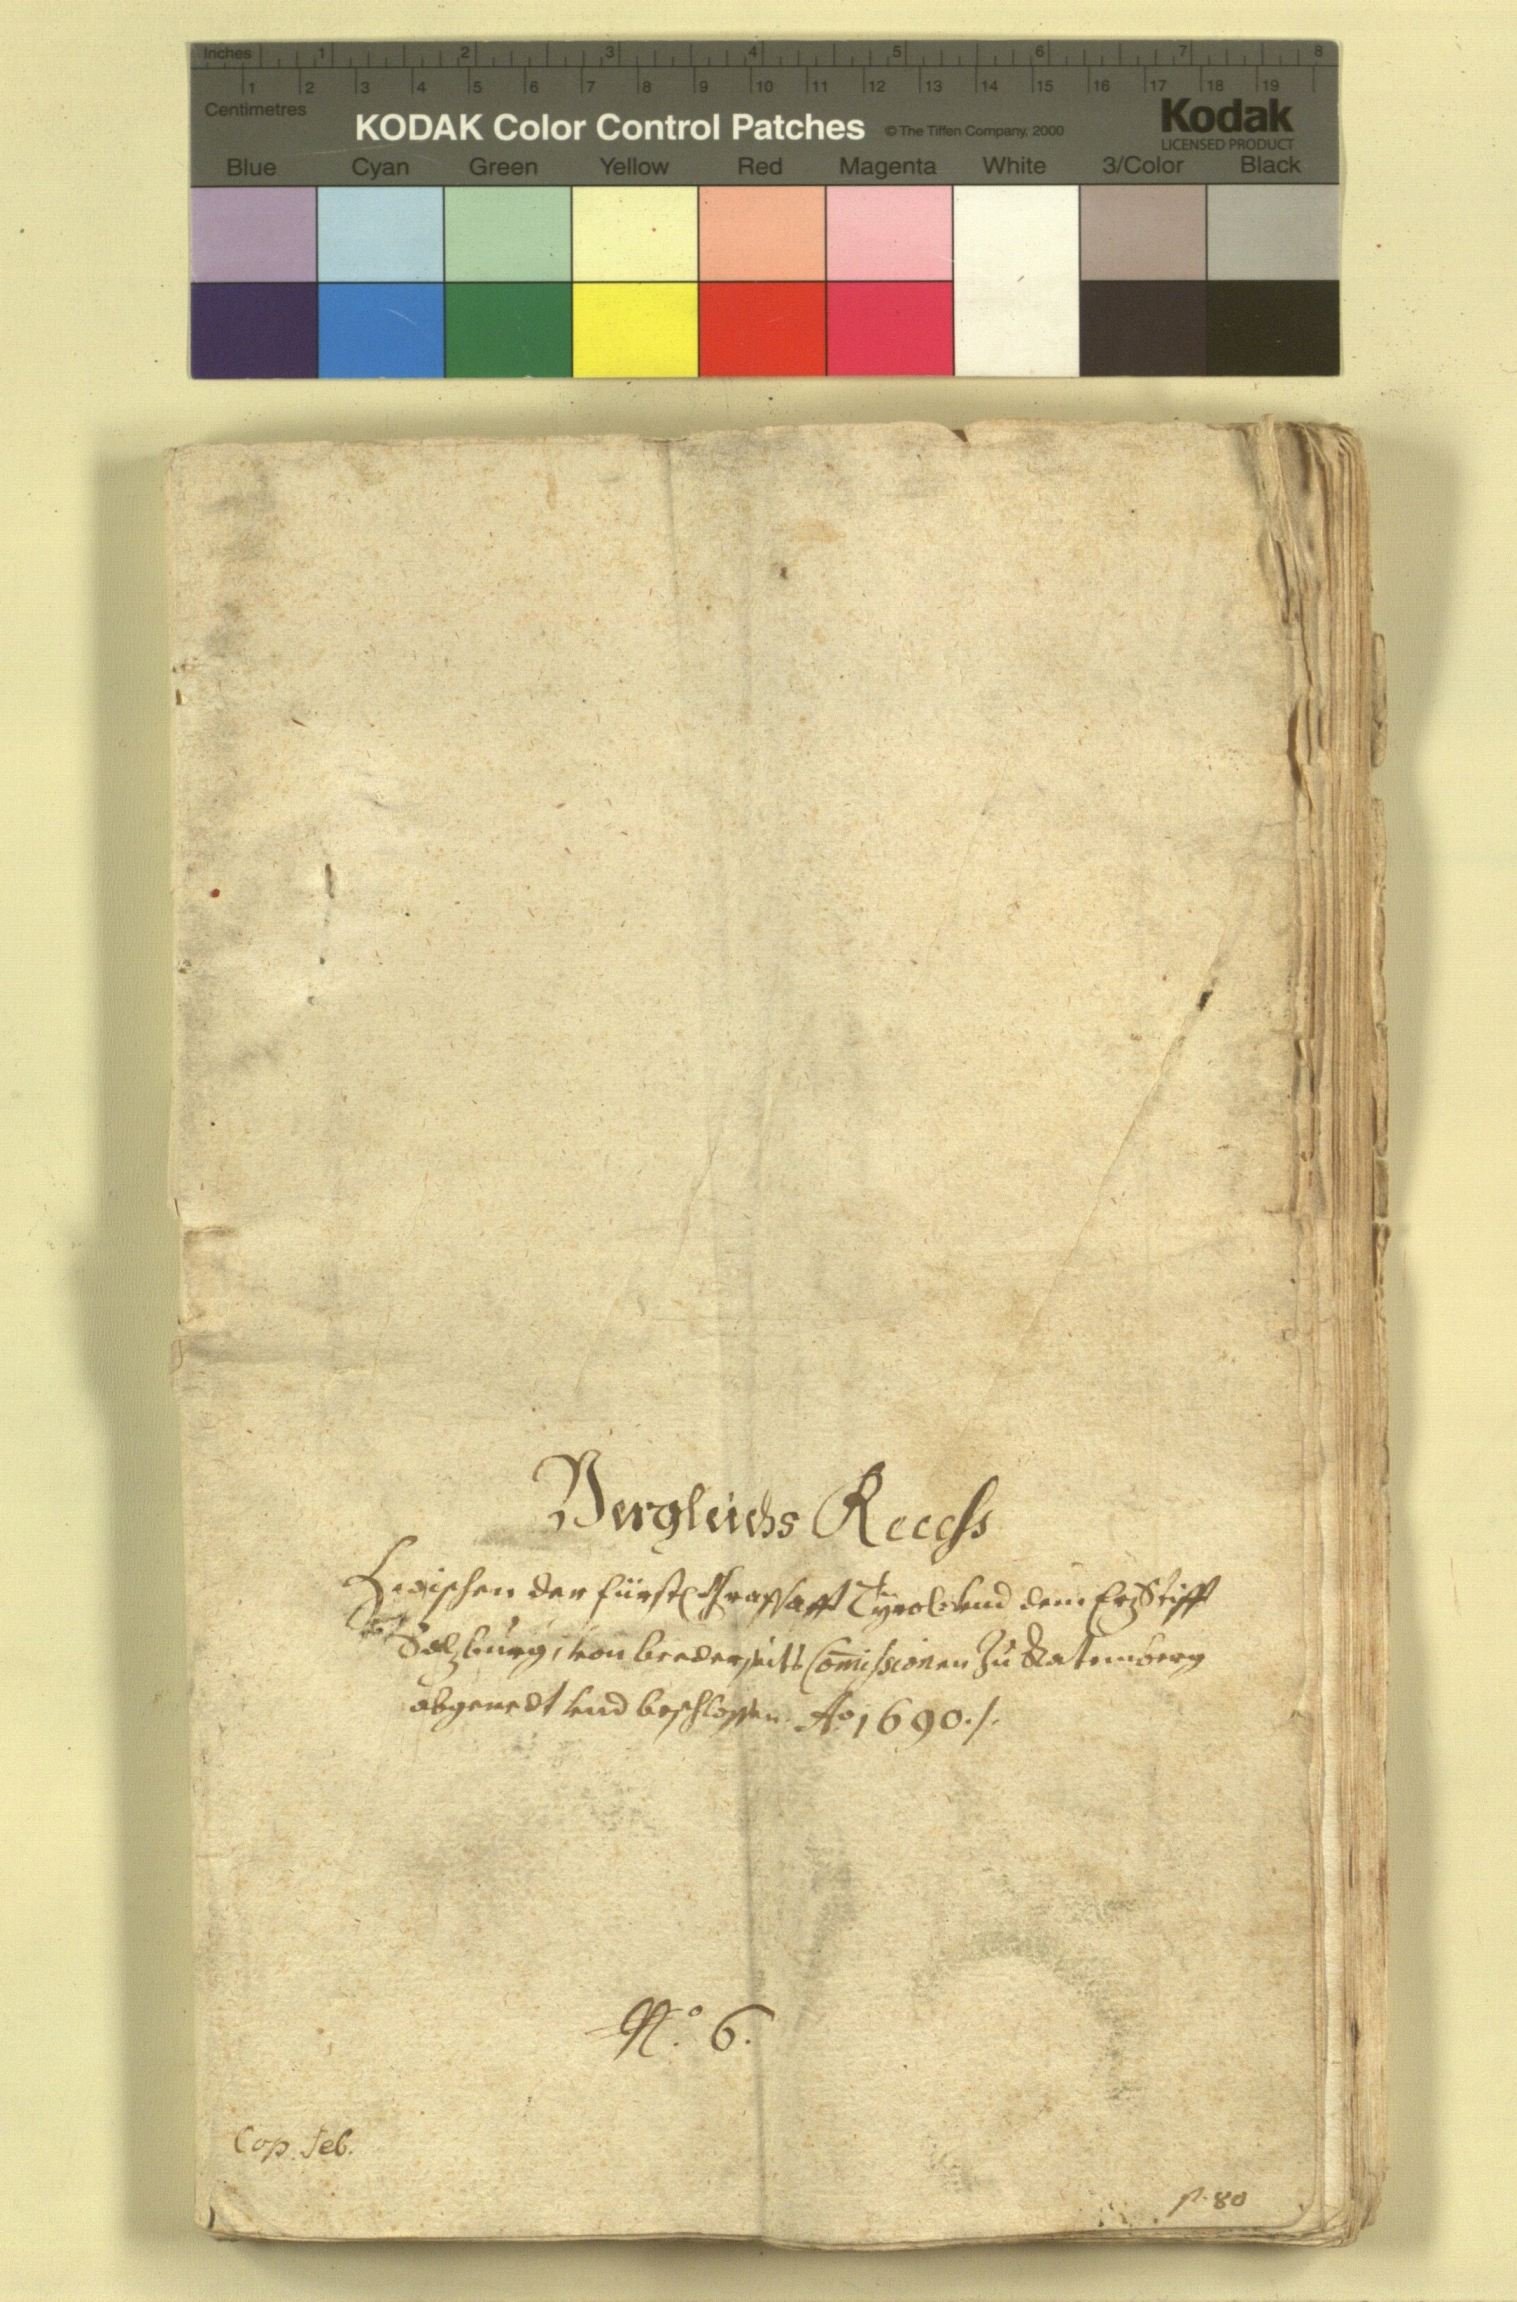 Inches 1 2 3 4 5 6 7 8
1 2 3 4 5 6 7 8 9 10 11 12 13 14 15 16 17 18 19
Centimetres
KODAK Color Control Patches © The Tiffen Company, 2000 Kodak
LICENSED PRODUCT
Blue Cyan Green Yellow Red Magenta White 3/Color Black
Vergleichs Recess
Zwischen der fürstl. Graffschafft Tyrol vnd dem Erz Stifft
Salzburg, von beederseits Com̄issionen Zu Ratemberg
abgeredt vnd beschlossen. Ao 1690./.
No. 6.
Cop. Seb.
p. 80